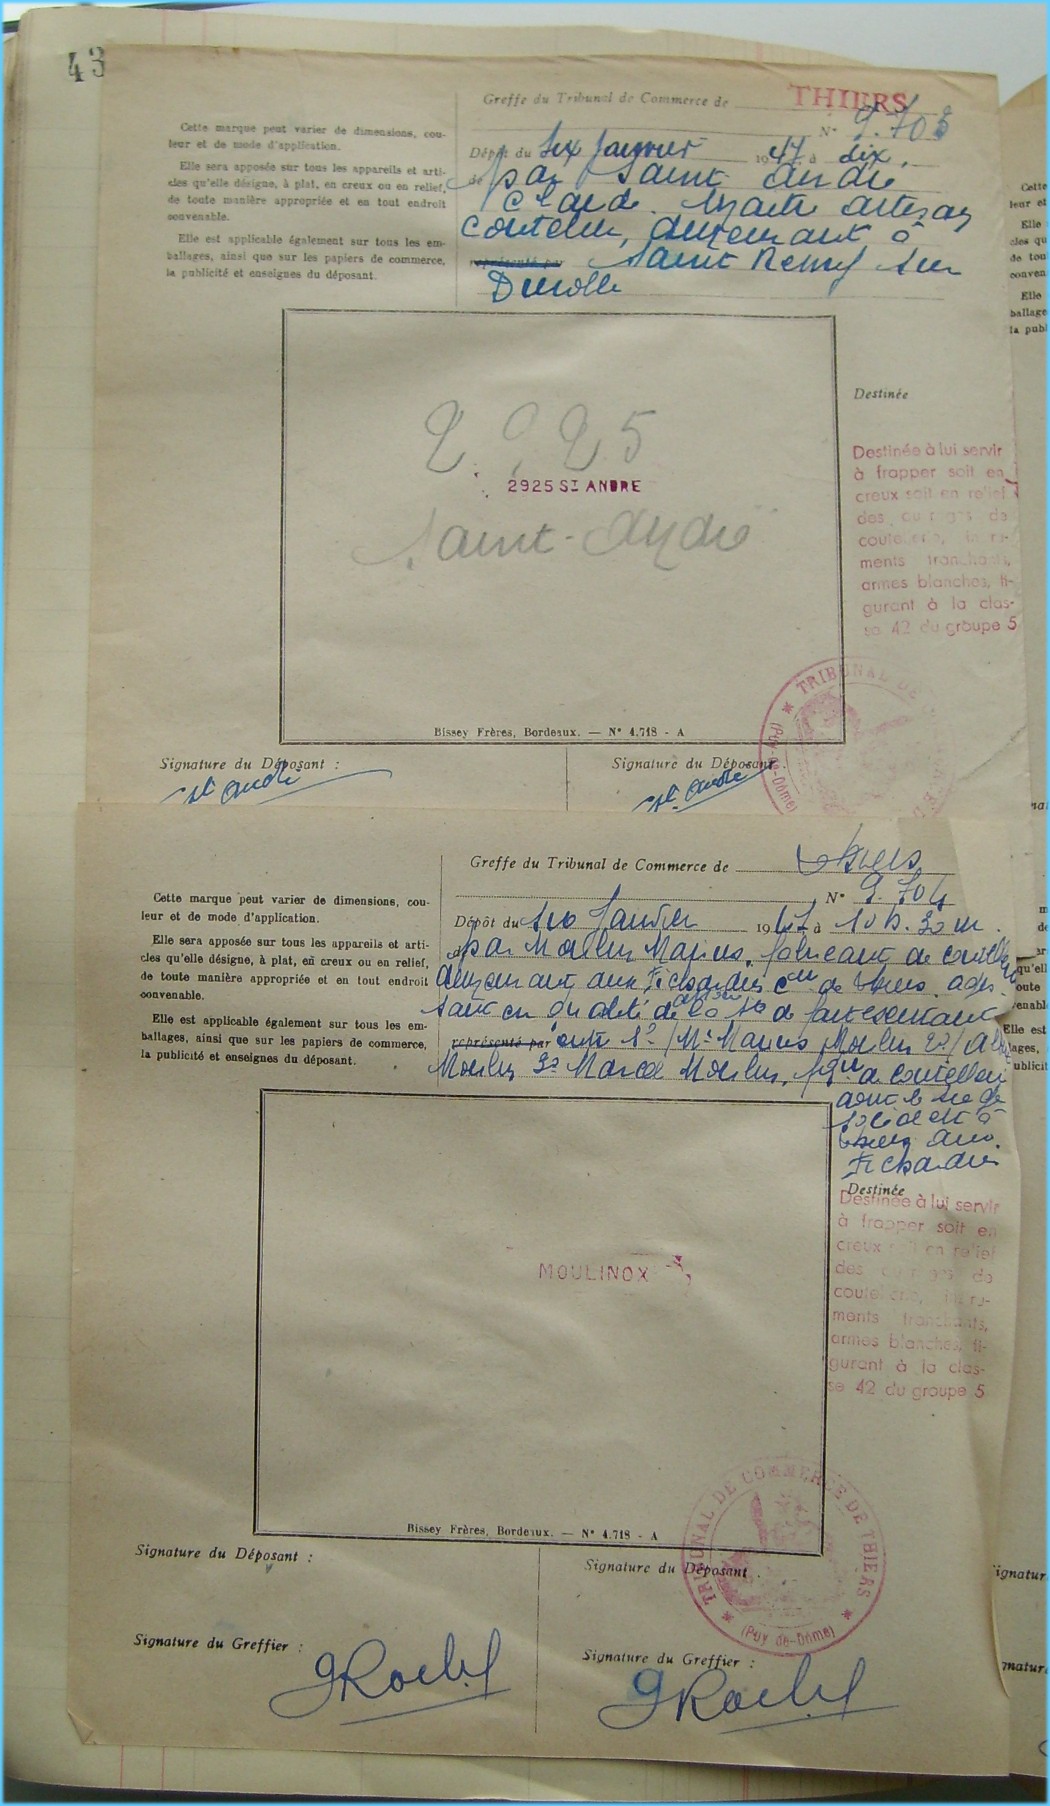 43
Greffe du Tribunal de Commerce de THIERS
N° 9.703
Cette marque peut varier de dimensions, cou-
leur et de mode d'application.
Elle sera apposée sur tous les appareils et arti-
cles qu'elle désigne, à plat, en creux ou en relief,
de toute manière appropriée et en tout endroit
convenable.
Elle est applicable également sur tous les em-
ballages, ainsi que sur les papiers de commerce,
la publicité et enseignes du déposant.
Dépôt du six Janvier 1947 à dix
de par Saint André
Claude. Maitre artisan
Coutelier, demeurant à
représenté par Saint Remy sur
Durolle
2925
2925 ST ANDRE
Saint-André
Destinée
Destinée à lui servir
à frapper soit en
creux soit en relief
des ouvrages de
coutellerie, instru-
ments tranchants,
armes blanches, fi-
gurant à la clas-
se 42 du groupe 5
TRIBUNAL DE
(Puy-de-Dôme)
Bissey Frères, Bordeaux. — N° 4.718 - A
Signature du Déposant :
St André
Signature du Déposant :
St André
Greffe du Tribunal de Commerce de Thiers
N° 9.704
Cette marque peut varier de dimensions, cou-
leur et de mode d'application.
Elle sera apposée sur tous les appareils et arti-
cles qu'elle désigne, à plat, en creux ou en relief,
de toute manière appropriée et en tout endroit
convenable.
Elle est applicable également sur tous les em-
ballages, ainsi que sur les papiers de commerce,
la publicité et enseignes du déposant.
Dépôt du six Janvier 1947 à 10 h. 30 m.
par Moulin Marius, fabricant de
demeurant aux Fichardies Cne de Thiers. agis-
sant en qualité de
représenté par entre 1° / Mr Marius Moulin 2° /
Moulin 3° Marcel Moulin,
dont le siège
social est à
Thiers aux
Fichardies
Destinée
Destinée à lui servir
à frapper soit en
creux soit en relief
des ouvrages de
coutellerie, instru-
ments tranchants,
armes blanches, fi-
gurant à la clas-
se 42 du groupe 5
MOULINOX
Bissey Frères, Bordeaux. — N° 4.718 - A
TRIBUNAL DE COMMERCE DE THIERS
(Puy-de-Dôme)
Signature du Déposant :
Signature du Déposant :
Signature du Greffier :
Signature du Greffier :